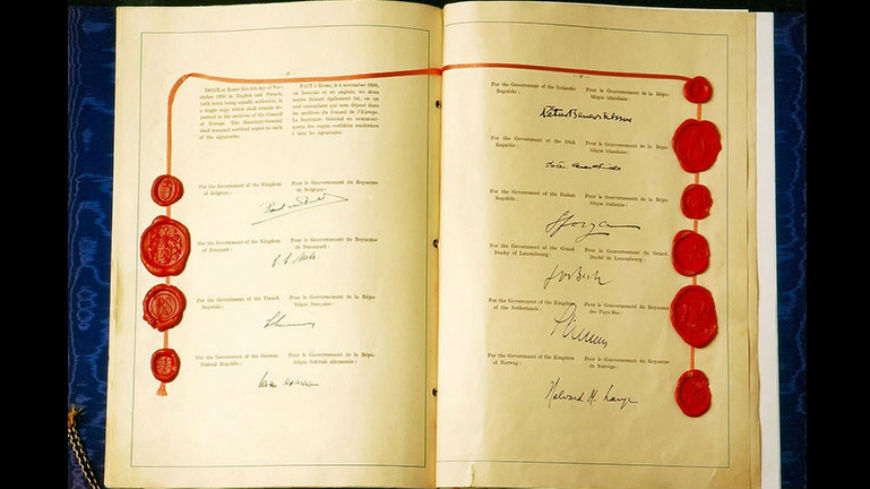 DONE at Rome this 4th day of No-
vember 1950 in English and French,
both texts being equally authentic, in
a single copy which shall remain de-
posited in the archives of the Council
of Europe. The Secretary-General
shall transmit certified copies to each
of the signatories.
FAIT à Rome, le 4 novembre 1950,
en français et en anglais, les deux
textes faisant également foi, en un
seul exemplaire qui sera déposé dans
les archives du Conseil de l'Europe.
Le Secrétaire Général en communi-
quera des copies certifiées conformes
à tous les signataires.
For the Government of the Kingdom
of Belgium:
Pour le Gouvernement du Royaume
de Belgique:
For the Government of the Kingdom
of Denmark:
Pour le Gouvernement du Royaume
de Danemark:
For the Government of the French
Republic:
Pour le Gouvernement de la Répu-
blique française:
For the Government of the German
Federal Republic:
Pour le Gouvernement de la Répu-
blique fédérale allemande:
For the Government of the Icelandic
Republic:
Pour le Gouvernement de la Répu-
blique islandaise:
For the Government of the Irish
Republic:
Pour le Gouvernement de la Répu-
blique irlandaise:
For the Government of the Italian
Republic:
Pour le Gouvernement de la Répu-
blique italienne:
Sforza
For the Government of the Grand
Duchy of Luxembourg:
Pour le Gouvernement du Grand-
Duché de Luxembourg:
Jos Bech
For the Government of the Kingdom
of the Netherlands:
Pour le Gouvernement du Royaume
des Pays-Bas:
For the Government of the Kingdom
of Norway:
Pour le Gouvernement du Royaume
de Norvège:
Halvard M. Lange